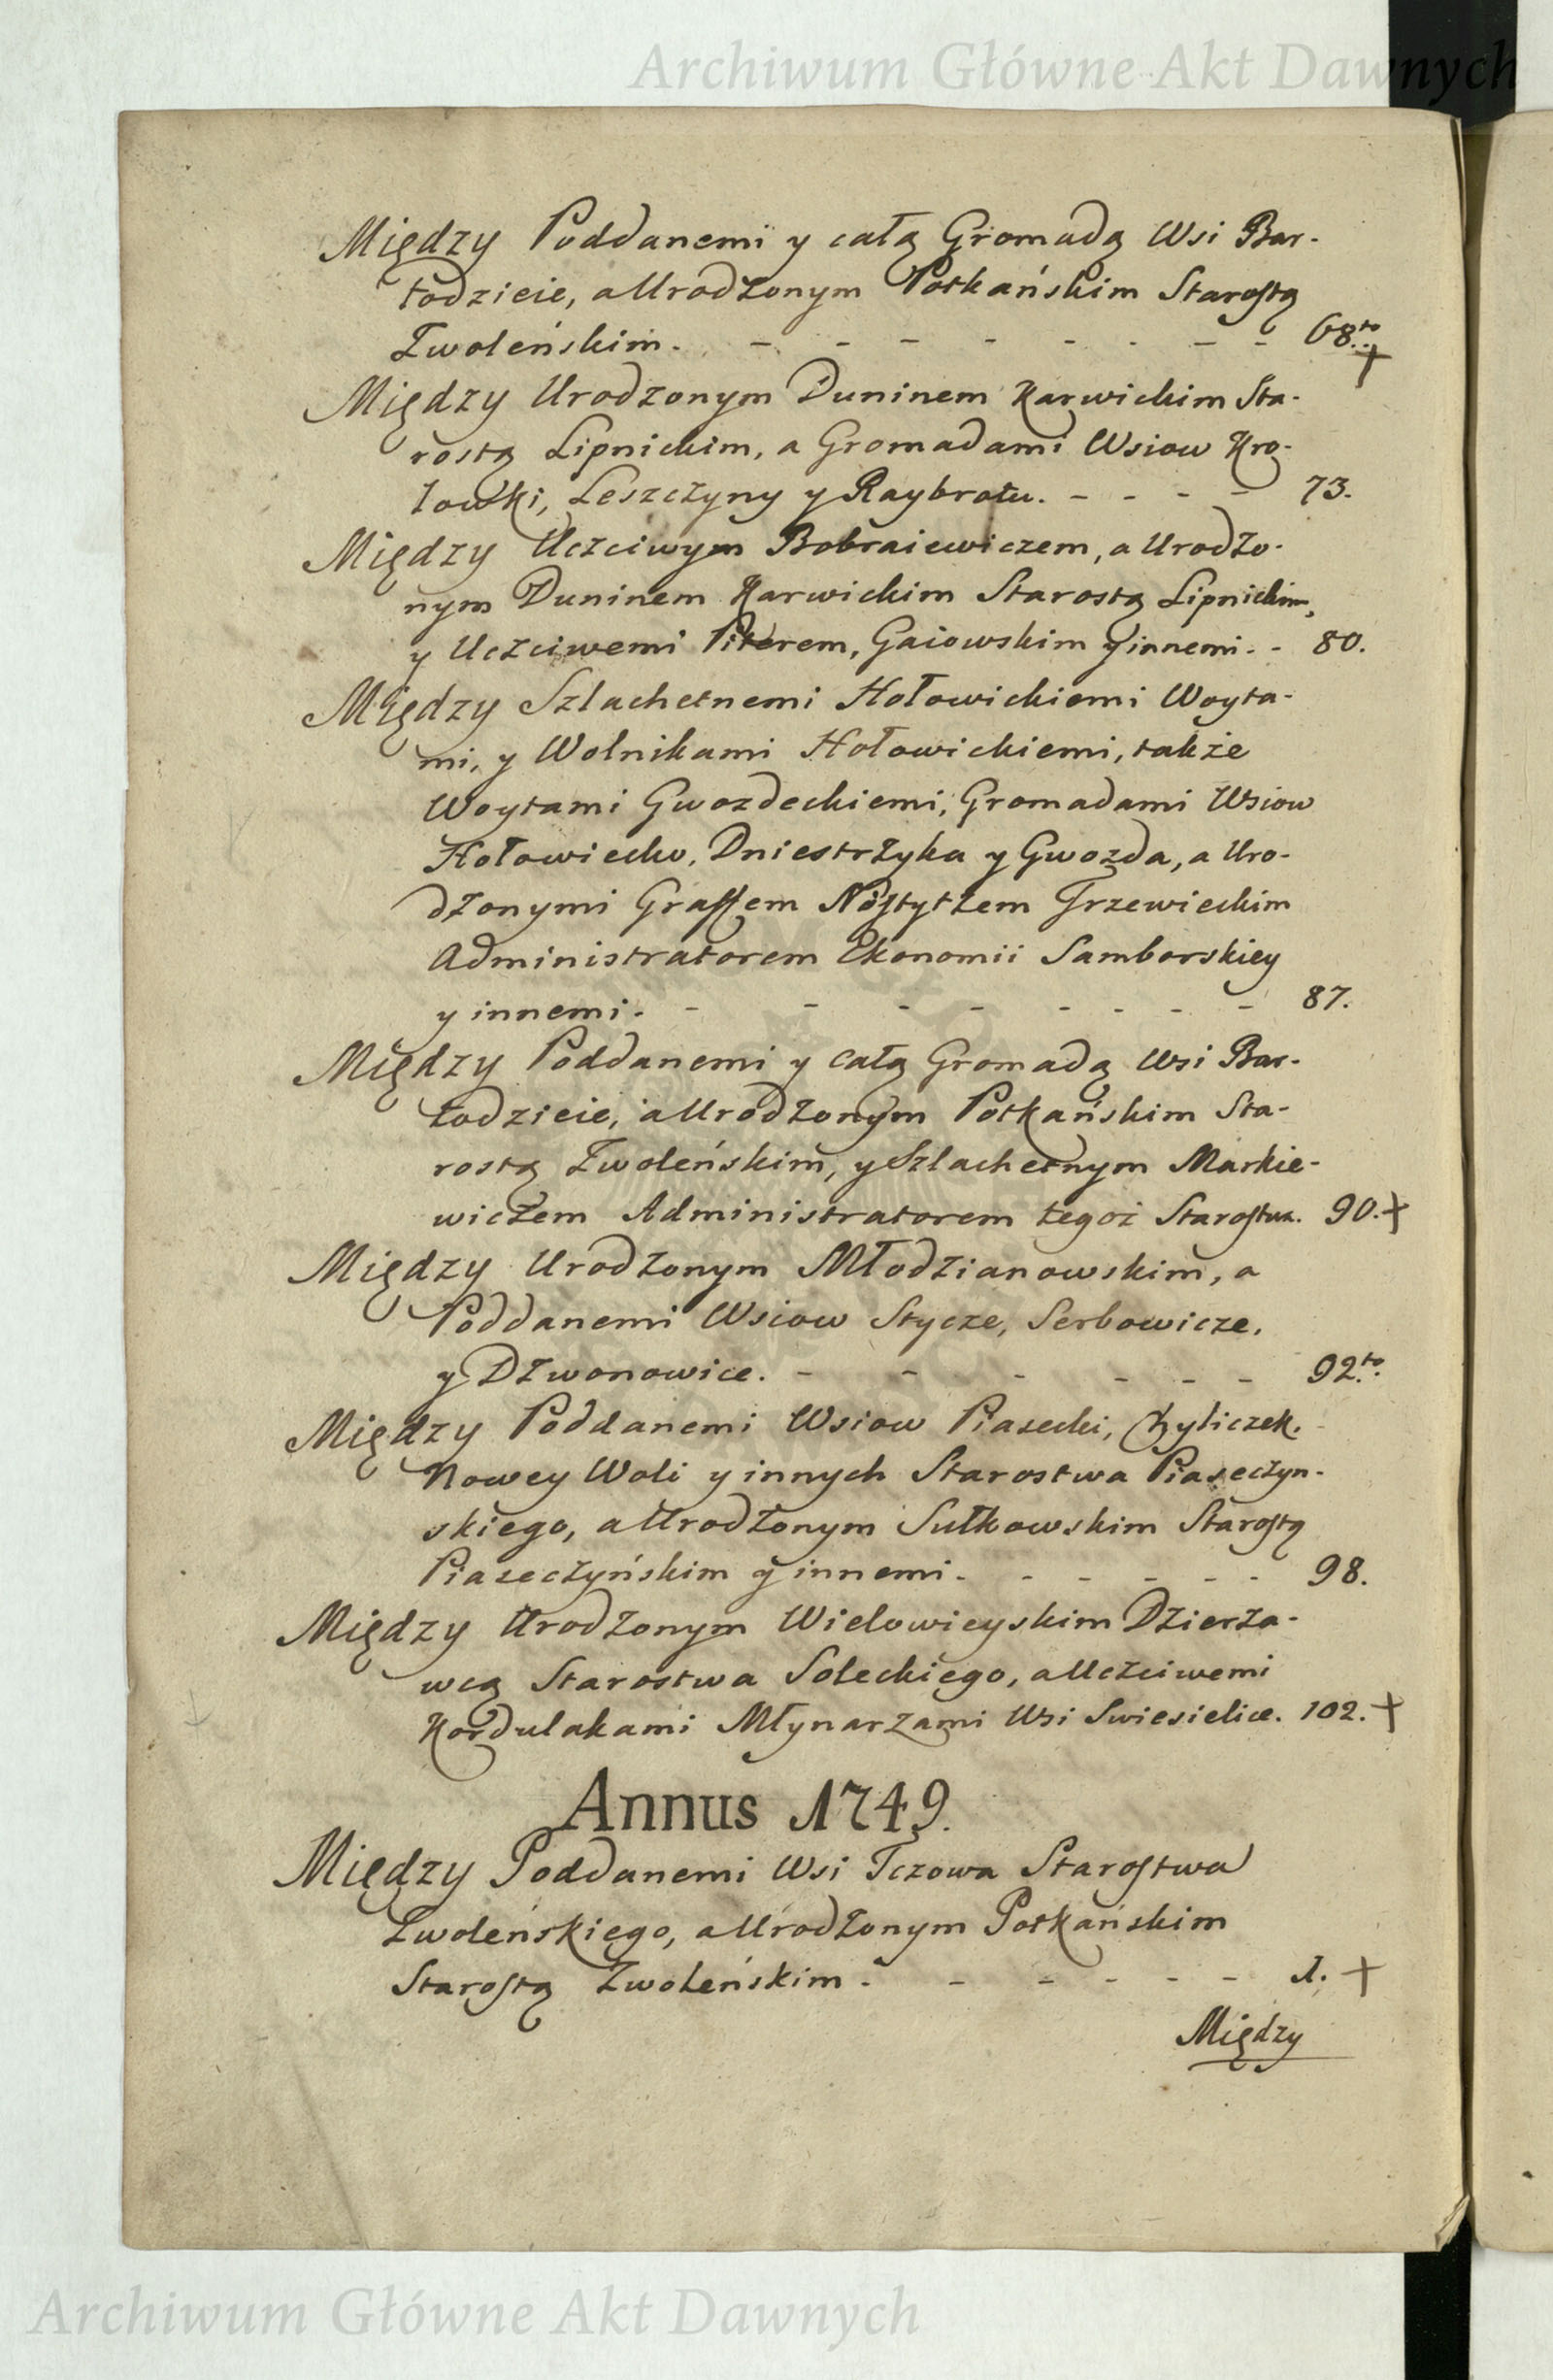 Archiwum Główne Akt Dawnych
Między Poddanemi y całą Gromadą Wsi Bar-
todzieie, a Urodzonym Potkańskim Starostą
Zwoleńskim. - - - - - - - - 68.to +
Między Urodzonym Duninem Karwickim Sta-
rostą Lipnickim, a Gromadami Wsiow Kro-
lowki, Leszczyny y Raybrotu. - - - - 73.
Między Uczciwym Bobraiewiczem, a Urodzo-
nym Duninem Karwickim Starostą Lipnickim,
y Uczciwemi Piterem, Gaiowskim y innemi. - 80.
Między Szlachetnemi Hołowickiemi Woyta-
mi, y Wolnikami Hołowickiemi, także
Woytami Gwozdeckiemi, Gromadami Wsiow
Hołowiecko, Dniestrzyka y Gwozda, a Uro-
dzonymi Graffem Nostytzem Trzewieckim
Administratorem Ekonomii Samborskiey
y innemi. - - - - - - - - 87.
Między Poddanemi y całą Gromadą Wsi Bar-
todzieie, a Urodzonym Potkańskim Sta-
rostą Zwoleńskim, y Szlachetnym Markie-
wiczem Administratorem tegoż Starostwa. 90. +
Między Urodzonym Młodzianowskim, a
Poddanemi Wsiow Stycze, Serbowicze,
y Dzwonowice. - - - - - - 92.to
Między Poddanemi Wsiow Piasecki, Chyliczek,
Nowey Woli y innych Starostwa Piaseczyn-
skiego, a Urodzonym Sułkowskim Starostą
Piaseczyńskim y innemi. - - - - - 98.
Między Urodzonym Wielowieyskim Dzierża-
wcą Starostwa Soleckiego, a Uczciwemi
Kordulakami Młynarzami Wsi Swiesielice. 102. +
Annus 1749.
Między Poddanemi Wsi Tczowa Starostwa
Zwoleńskiego, a Urodzonym Potkańskim
Starostą Zwoleńskim. - - - - - 1. +
Między
Archiwum Główne Akt Dawnych